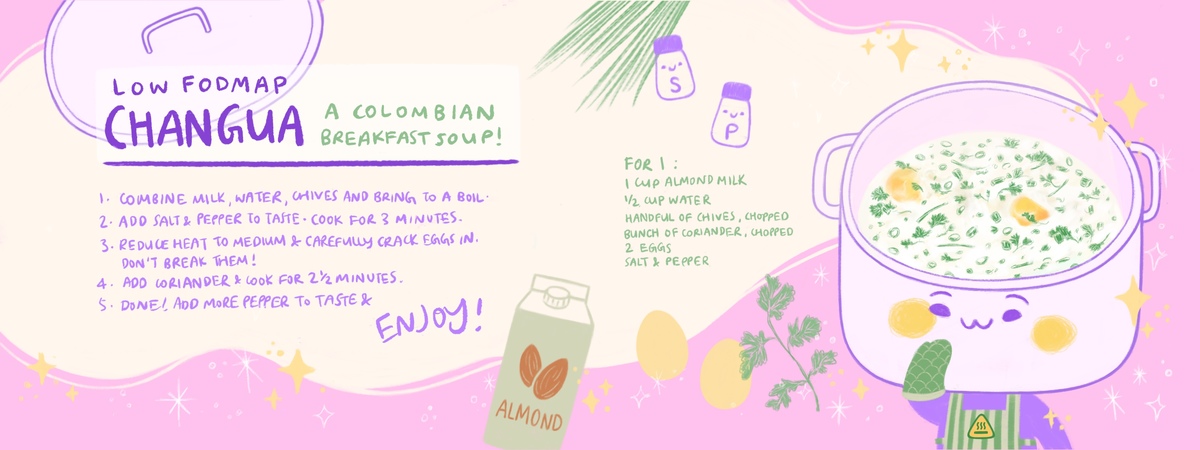 LOW FODMAP
CHANGUA
A COLOMBIAN
BREAKFAST SOUP!
1. COMBINE MILK, WATER, CHIVES AND BRING TO A BOIL.
2. ADD SALT & PEPPER TO TASTE. COOK FOR 3 MINUTES.
3. REDUCE HEAT TO MEDIUM & CAREFULLY CRACK EGGS IN.
DON'T BREAK THEM!
4. ADD CORIANDER & COOK FOR 2½ MINUTES.
5. DONE! ADD MORE PEPPER TO TASTE &
ENJOY!
S
P
FOR 1:
1 CUP ALMOND MILK
½ CUP WATER
HANDFUL OF CHIVES, CHOPPED
BUNCH OF CORIANDER, CHOPPED
2 EGGS
SALT & PEPPER
ALMOND